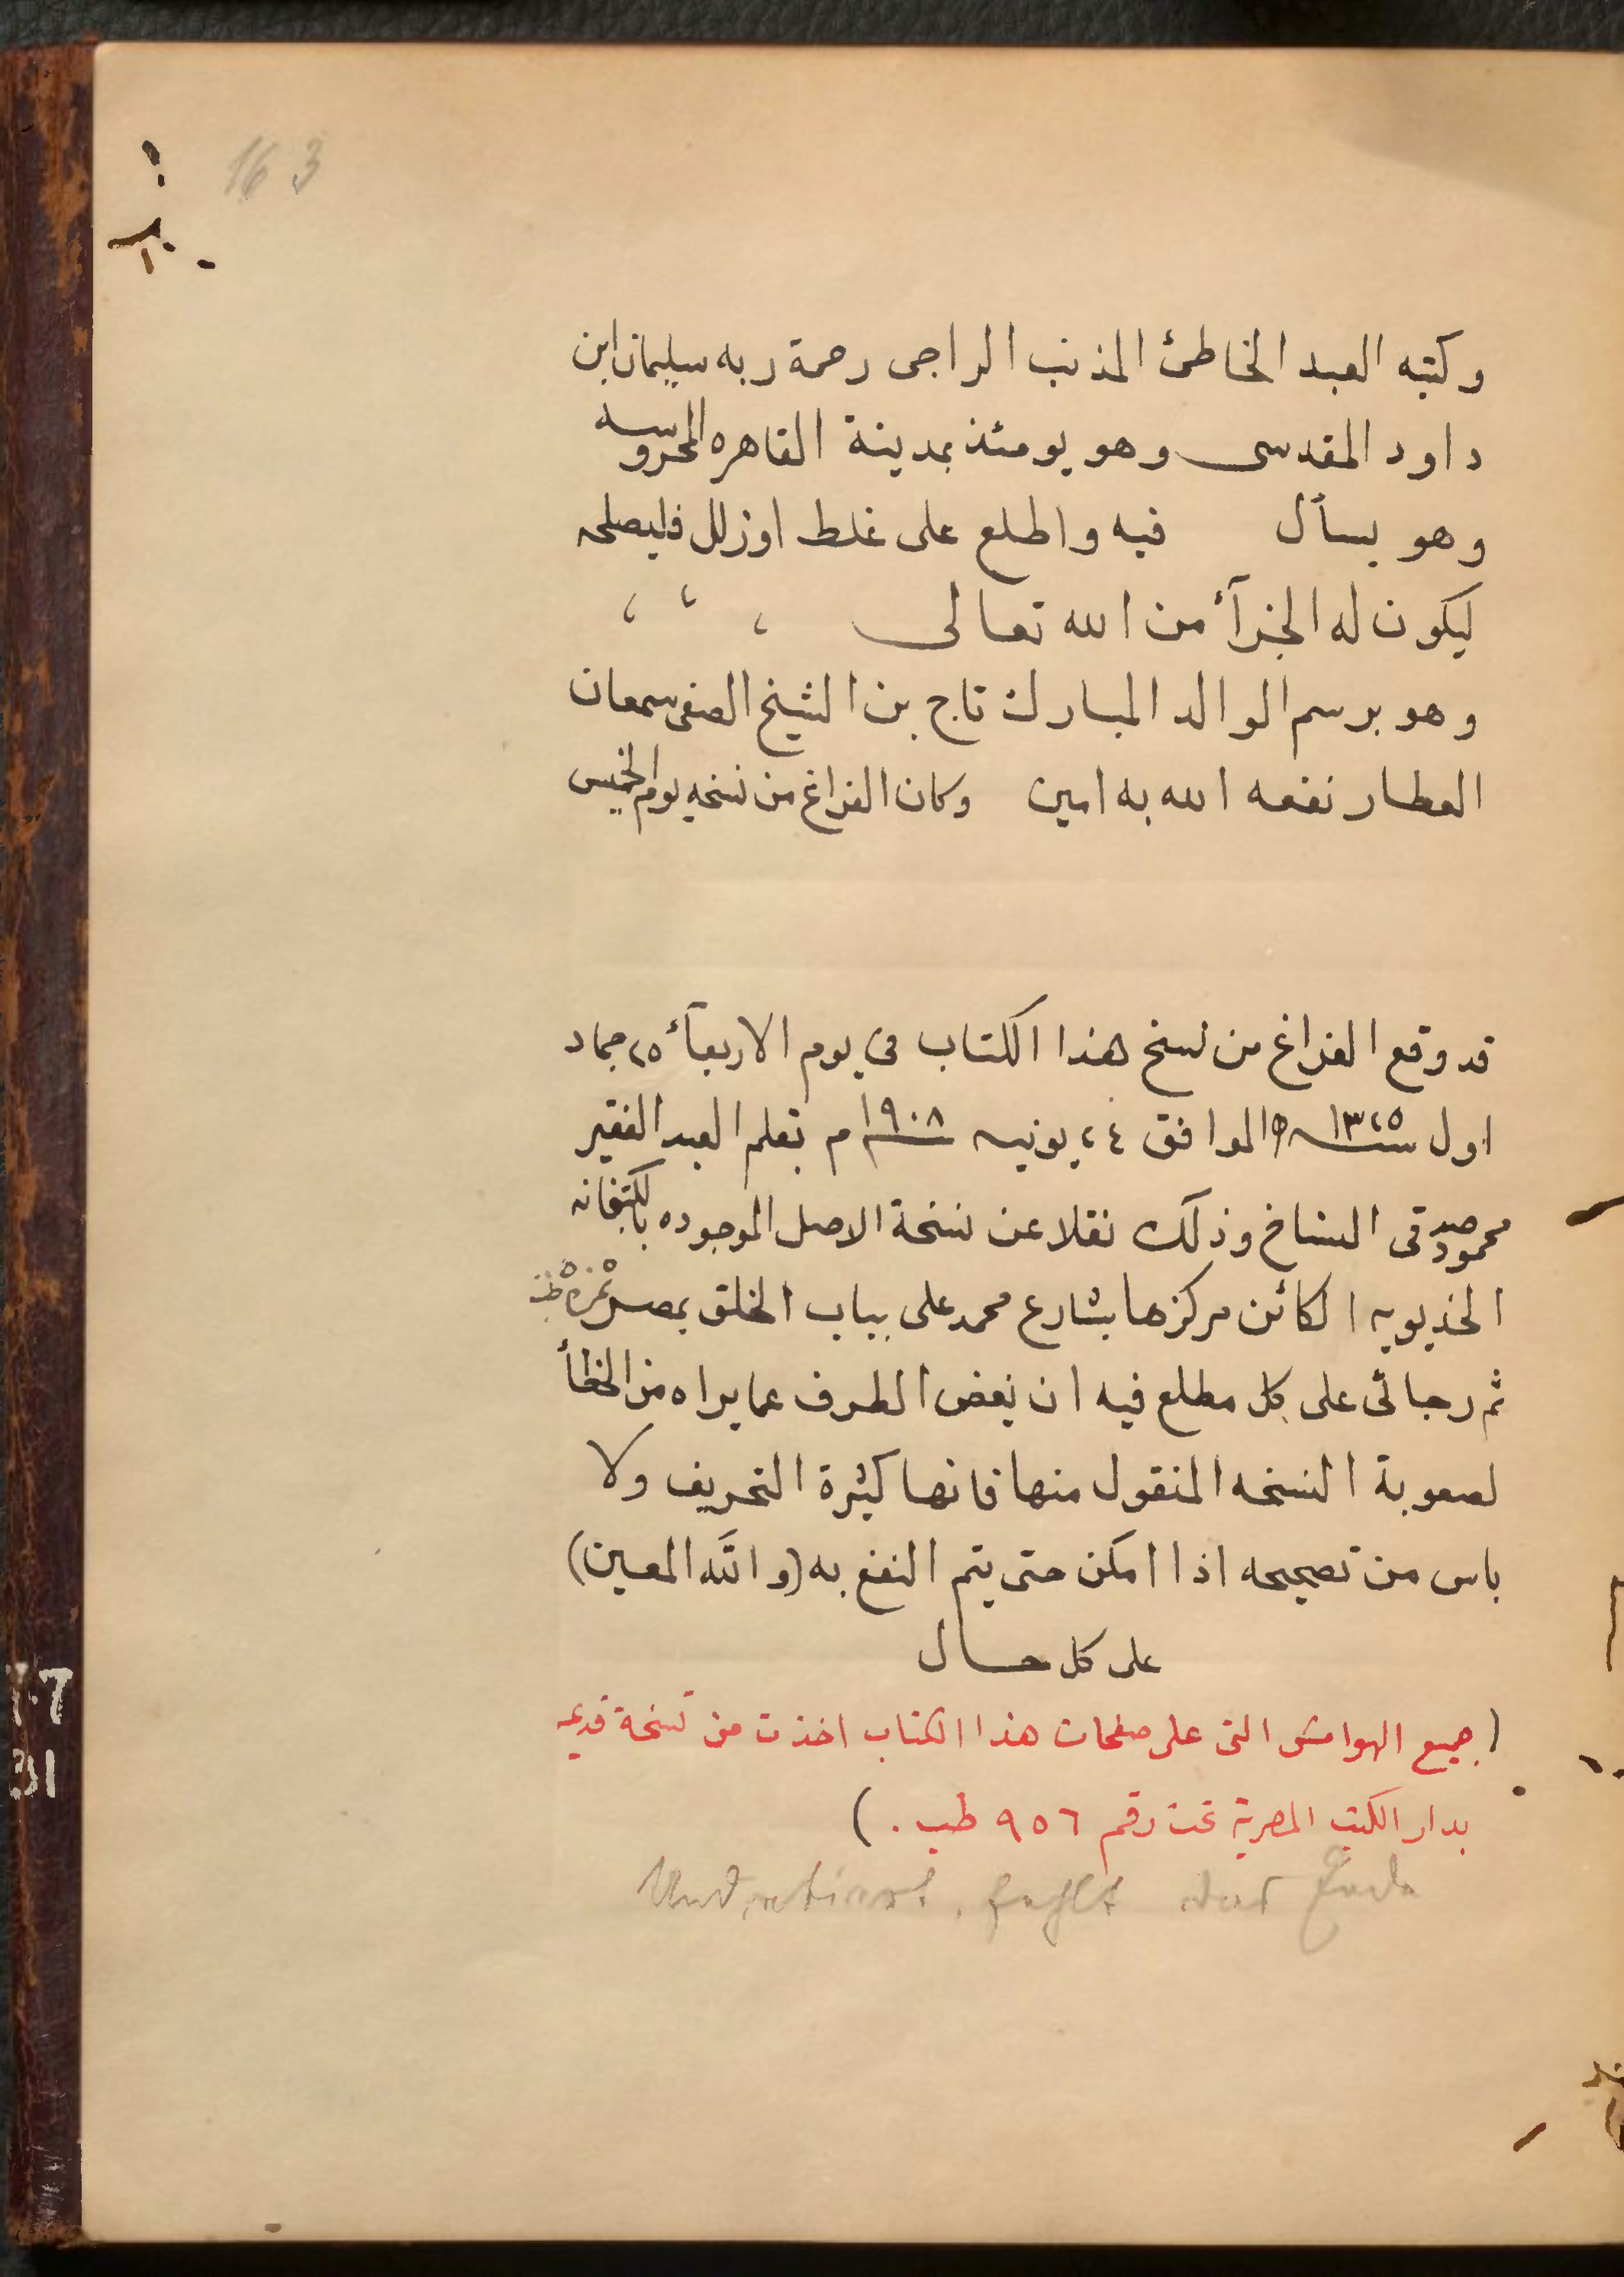 163
وكتبه العبد الخاطئ المذنب الراجى رحمة ربه سليمان ابن
داود المقدسى وهو يومئذ بمدينة القاهره المحروسه
وهو يسأل فيه واطلع على غلط اوزلل فليصلحه
ليكون له الجزآء من الله تعالى ، ، ،
وهو برسم الوالد المبارك تاج بن الشيخ الصفى سمعان
العطار نفعه الله به امين وكان الفراغ من نسخه يوم الخميس
قد وقع الفراغ من نسخ هذا الكتاب فى يوم الاربعآء ٢٥ جماد
اول سنة ١٣٢٥ه الموافق ٢٤ يونيه سنة ١٩٠٨م بقلم العبد الفقير
محمود صدقى النساخ وذلك نقلا عن نسخة الاصل الموجوده بالكتبخانه
الخديويه الكائن مركزها بشارع محمد على بباب الخلق بمصر نمره
ثم رجائى على كل مطلع فيه ان يغض الطرف عما يراه من الخطأ
لصعوبة النسخه المنقول منها فانها كثيرة التحريف ولا
باس من تصحيحه اذا امكن حتى يتم النفع به (والله المعين)
على كل حال
(جميع الهوامش التى على صفحات هذا الكتاب اخذت من نسخة قديمه
بدار الكتب المصرية تحت رقم ٩٥٦ طب . )
fehlt das Ende